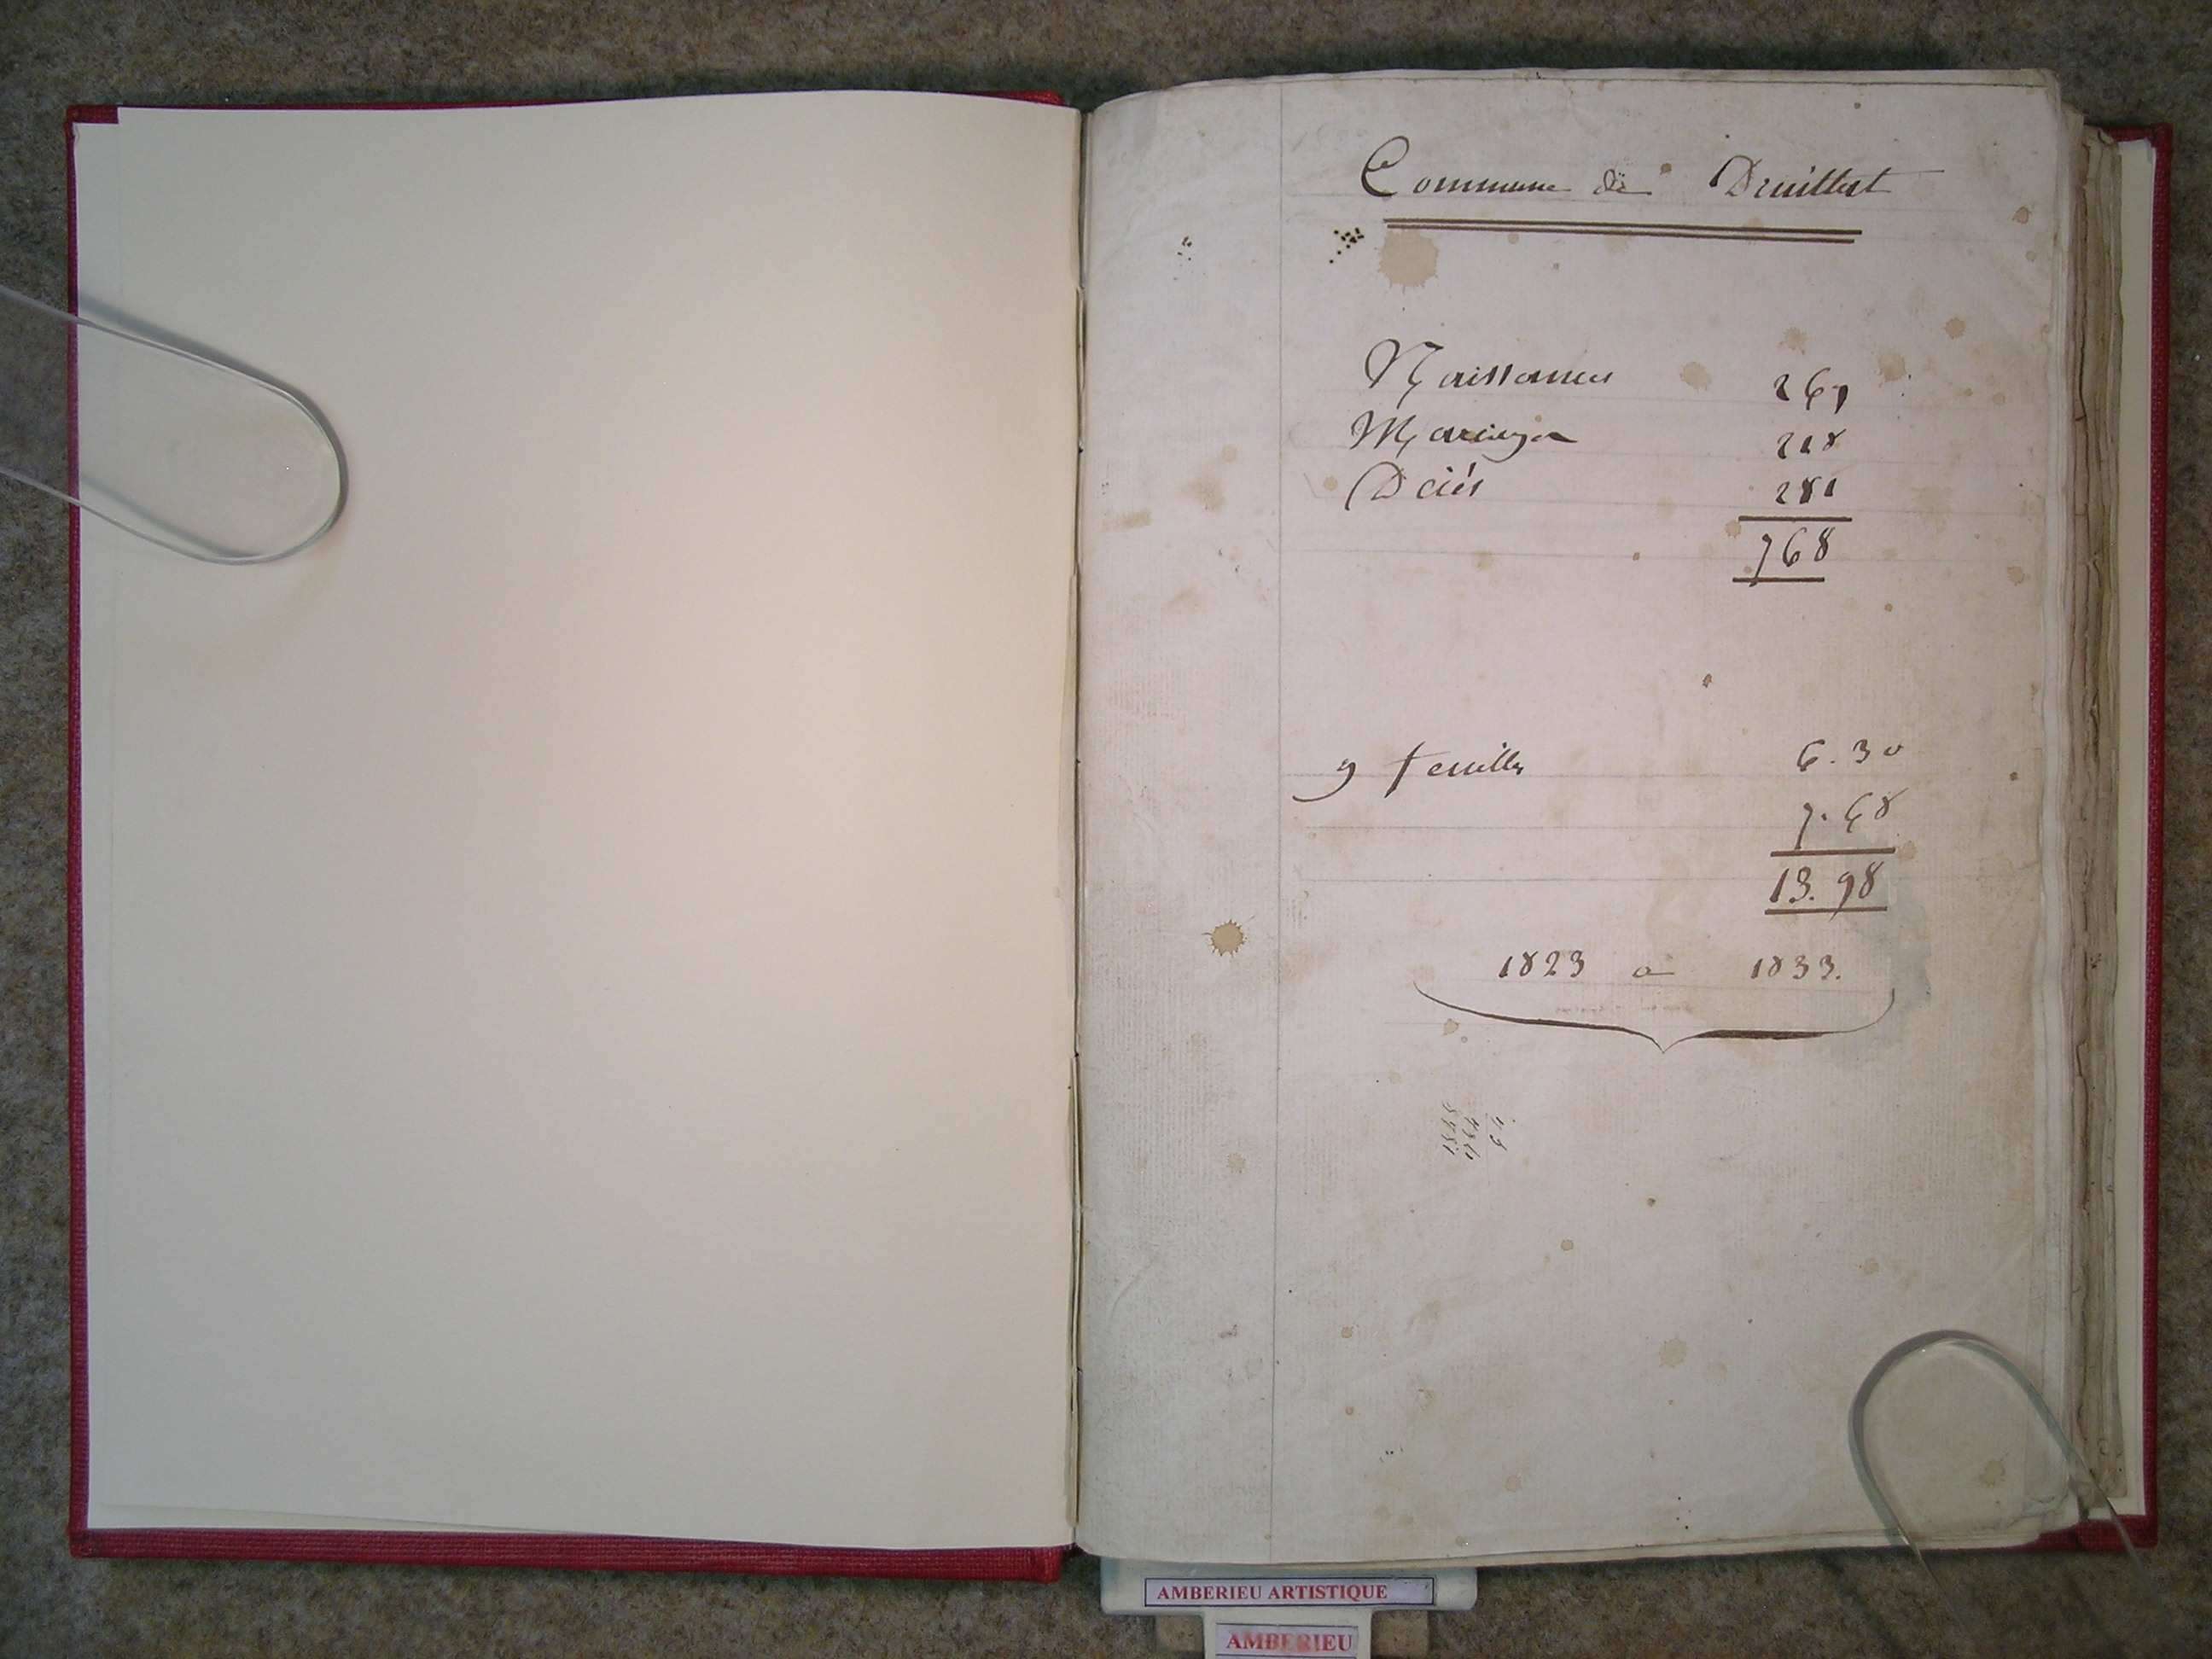 Commune de Druillat
Naissances 269
Mariages 218
Décès 281
768
9 feuilles 6.30
7.68
13.98
1823 a 1833.
AMBERIEU ARTISTIQUE
AMBERIEU